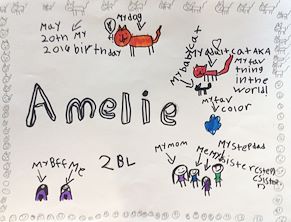 May
20th My
2014 birthday
My dog
My adult cat AKA
My fav
thing
in the
world!
My baby cat
my fav
color
Amelie
My Bff
Me
2BL
My mom
Me
My stepdad